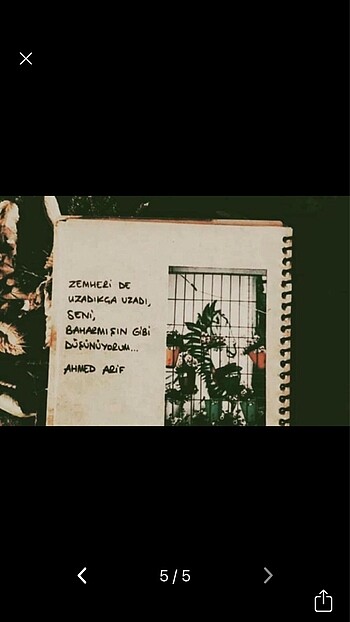 ZEMHERİ DE
UZADIKÇA UZADI,
SENİ,
BAHARMIŞIN GİBİ
DÜŞÜNÜYORUM...
AHMED ARİF
5/5